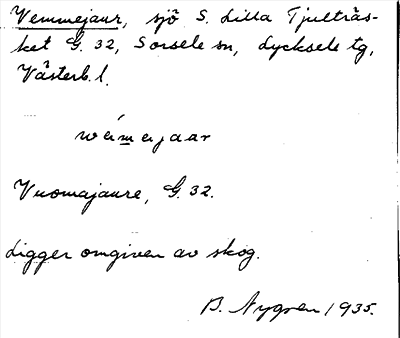 Vemmejaur, sjö S. Lilla Tjulträs-
ket G. 32, Sorsele sn, Lycksele tg,
Västerb. l.
wémejaar
Vuomajaure, G. 32.
Ligger omgiven av skog.
B. Nygren 1935.